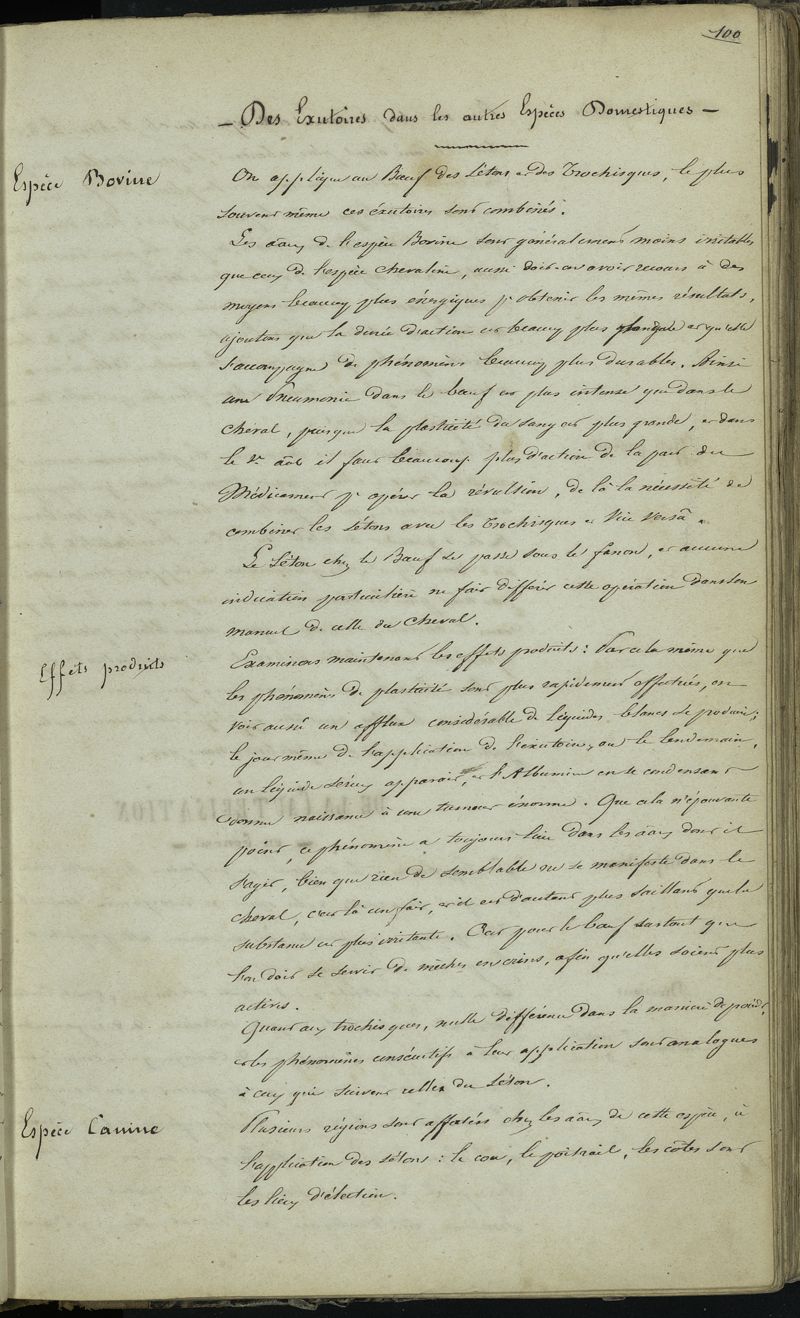 100
— Des Exutoires dans les autres Espèces Domestiques —
Espèce Bovine
On applique au Bœuf des Sétons et des Trochisques, le plus
souvent même ces exutoires sont combinés.
Les aâux de l'espèce Bovine sont généralement moins irritables
que ceux de l'espèce chevaline, aussi doit-on avoir recours à des
moyens beaucoup plus énergiques pr obtenir les mêmes résultats,
ajoutons que la durée d'action est beaucoup plus grande et qu'elle
s'accompagne de phénomènes beaucoup plus durables. Ainsi
une Pneumonie dans le bœuf est plus intense que dans le
cheval, puisque la plasticité du sang est plus grande, et dans
le 1er il faut beaucoup plus d'action de la part du
Médicament pr opérer la révulsion, de là la nécessité de
combiner les Sétons avec les Trochisques et Vice Versâ.
Le Séton chez le Bœuf se passe sous le fanon, et aucune
indication particulière ne fait différer cette opération dans son
manuel de celle du Cheval.
Effets produits
Examinons maintenant les effets produits : Par cela même que
les phénomènes de plasticité sont plus rapidement effectués, on
voit aussi un afflux considérable de liquides blancs se produire;
le jour même de l'application de l'exutoire, ou le lendemain,
un liquide séreux apparaît, et l'Albumine en se condensant
donne naissance à une tumeur énorme. Que cela n'épouvante
point, ce phénomène a toujours lieu dans les aâux dont il
s'agit, bien que rien de semblable ne se manifeste dans le
cheval, c'est là un fait, et il est d'autant plus saillant que la
substance est plus irritante. Car pour le bœuf surtout que
l'on doit se servir de mèches en crins, afin qu'elles soient plus
actives.
Quant aux trochisques, nulle différence dans la manière de poser,
et les phénomènes consécutifs à leur application sont analogues
à ceux qui suivent celles du Séton.
Espèce Canine
Plusieurs régions sont affectées chez les aâux de cette espèce, à
l'application des sétons : le cou, le poitrail, les côtes sont
les lieux d'élection.